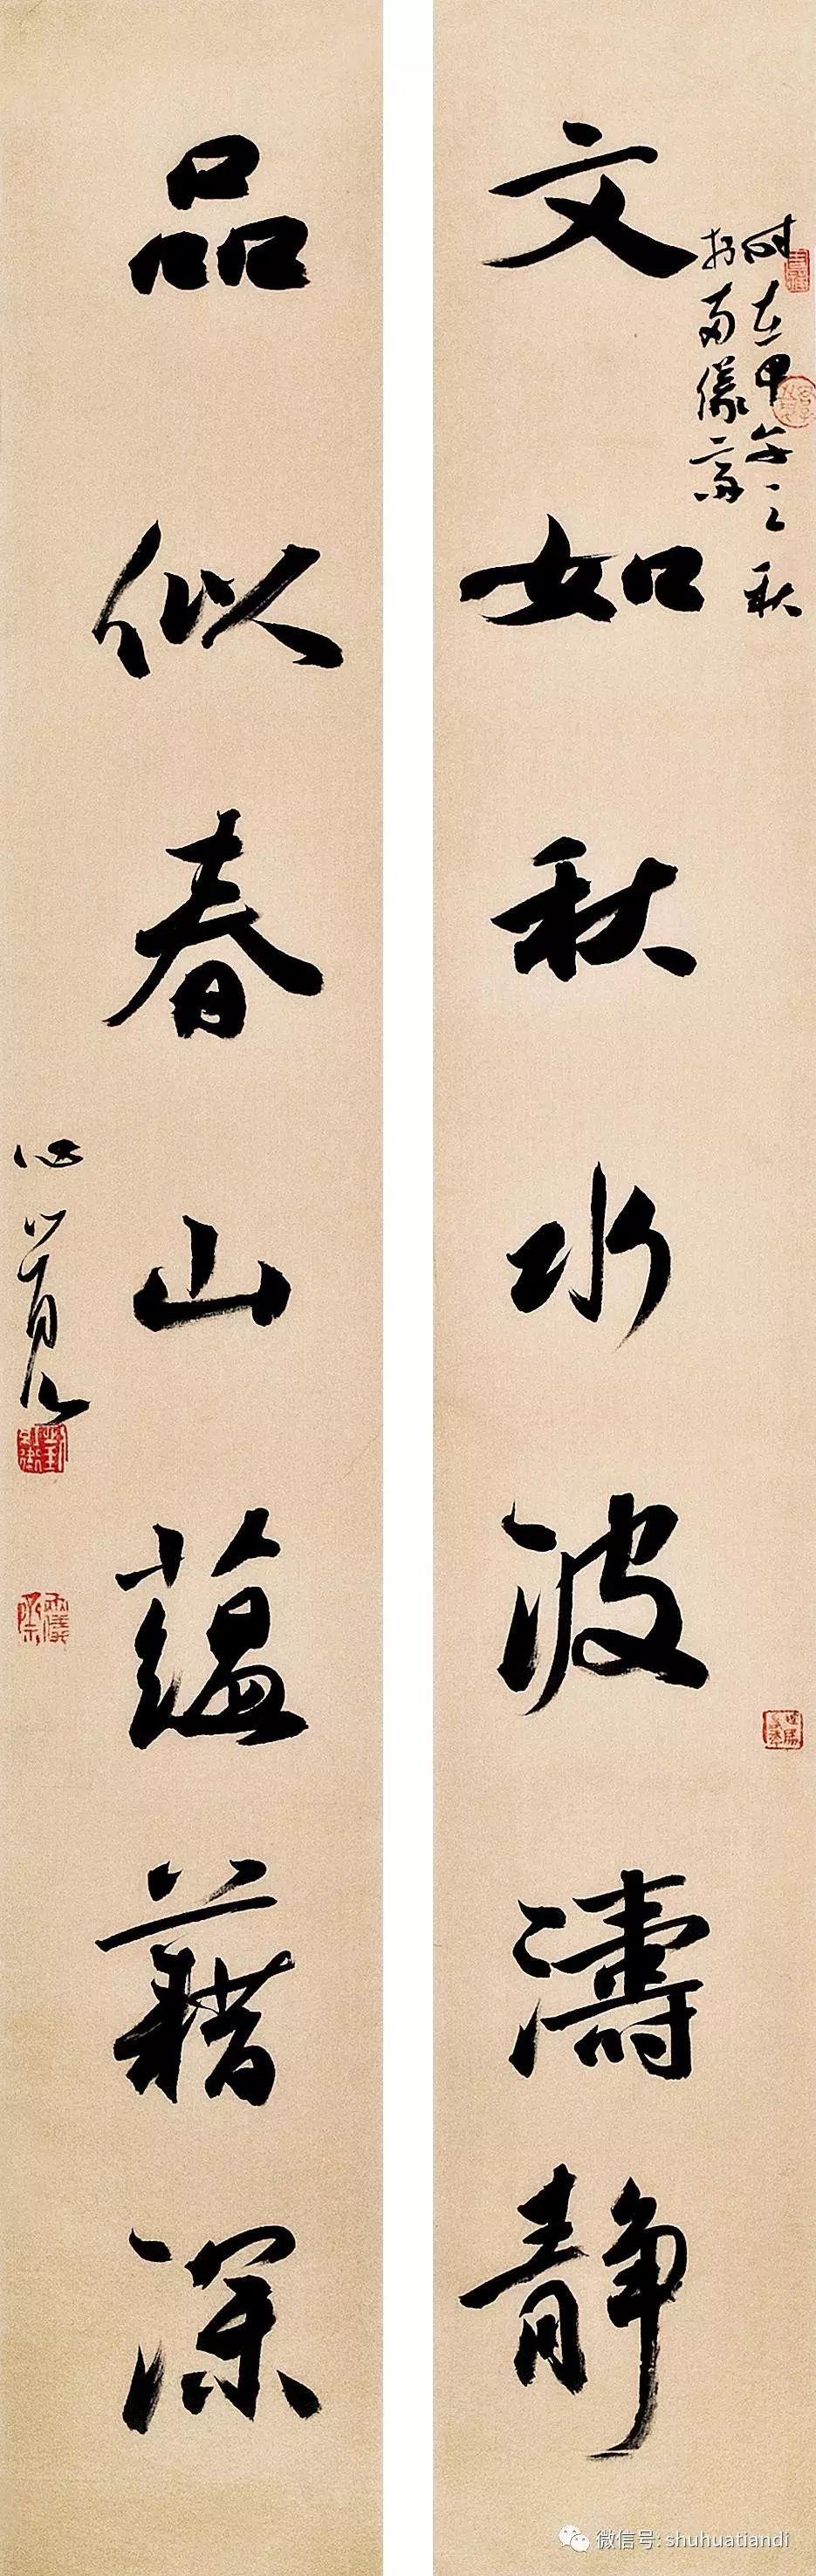 時在甲午之秋
於兩儀齋
文如秋水波濤靜
品似春山蘊藉深
微信号: shuhuatiandi